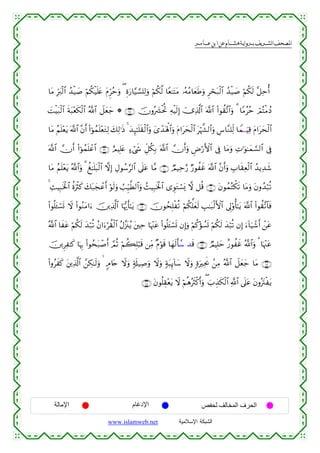 المصحف الشريف برواية هشام عن ابن عامر
أُحِلَّ لَكُمْ صَيْدُ الْبَحْرِ وَطَعَامُهُ مَتَاعًا لَكُمْ وَلِلسَّيَّارَةِ وَحُرِّمَ عَلَيْكُمْ صَيْدُ الْبَرِّ مَا
دُمْتُمْ حُرُمًا وَاتَّقُوا اللَّهَ الَّذِي إِلَيْهِ تُحْشَرُونَ جَعَلَ اللَّهُ الْكَعْبَةَ الْبَيْتَ
الْحَرَامَ قِيَمًا لِلنَّاسِ وَالشَّهْرَ الْحَرَامَ وَالْهَدْيَ وَالْقَلَائِدَ ذَلِكَ لِتَعْلَمُوا أَنَّ اللَّهَ يَعْلَمُ مَا
فِي السَّمَاوَاتِ وَمَا فِي الْأَرْضِ وَأَنَّ اللَّهَ بِكُلِّ شَيْءٍ عَلِيمٌ اعْلَمُوا أَنَّ اللَّهَ
شَدِيدُ الْعِقَابِ وَأَنَّ اللَّهَ غَفُورٌ رَحِيمٌ مَا عَلَى الرَّسُولِ إِلَّا الْبَلَاغُ وَاللَّهُ يَعْلَمُ مَا
تُبْدُونَ وَمَا تَكْتُمُونَ قُلْ لَا يَسْتَوِي الْخَبِيثُ وَالطَّيِّبُ وَلَوْ أَعْجَبَكَ كَثْرَةُ الْخَبِيثِ
فَاتَّقُوا اللَّهَ يَا أُولِي الْأَلْبَابِ لَعَلَّكُمْ تُفْلِحُونَ يَا أَيُّهَا الَّذِينَ آمَنُوا لَا تَسْأَلُوا
عَنْ أَشْيَاءَ إِنْ تُبْدَ لَكُمْ تَسُؤْكُمْ وَإِنْ تَسْأَلُوا عَنْهَا حِينَ يُنَزَّلُ الْقُرْآنُ تُبْدَ لَكُمْ عَفَا اللَّهُ
عَنْهَا وَاللَّهُ غَفُورٌ حَلِيمٌ قَدْ سَأَلَهَا قَوْمٌ مِنْ قَبْلِكُمْ ثُمَّ أَصْبَحُوا بِهَا كَافِرِينَ
مَا جَعَلَ اللَّهُ مِنْ بَحِيرَةٍ وَلَا سَائِبَةٍ وَلَا وَصِيلَةٍ وَلَا حَامٍ وَلَكِنَّ الَّذِينَ كَفَرُوا
يَفْتَرُونَ عَلَى اللَّهِ الْكَذِبَ وَأَكْثَرُهُمْ لَا يَعْقِلُونَ
الحرف المخالف لحفص الإدغام الإمالة
www.islamweb.net الشبكة الإسلامية